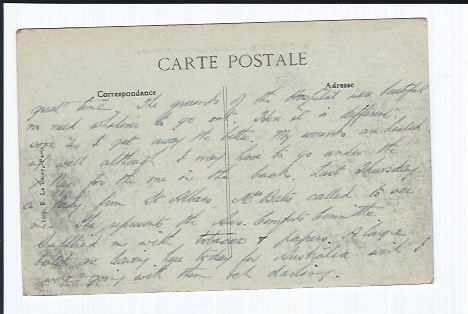 CARTE POSTALE
Correspondance
Adresse
great time. The grounds of the Hospital were beautiful
no need whatever to go out. Here it is different
I get away the better. My wounds are healed
up well although I may have to go under the
for the one in the back. Last Thursday
a lady from St Albans Mrs called to see
me. She represents the Aus. Comforts Committee
supplied me with tobacco & papers. A large
batch are leaving here today for Australia wish I
were going with them bck darling.
Imp. E. Le Deley, Paris